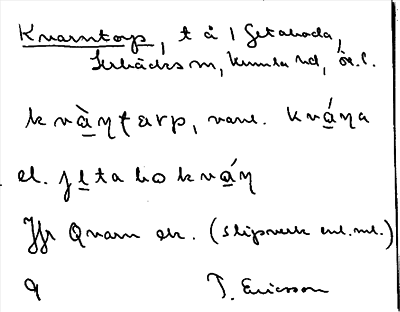 Kvarntorp, t å 1 Getaboda,
Lerbäcks sn, Kumla hd, Ör. l.
kvàṇṭarp, vanl. kváṇa
el. jetabokváṇ
Jfr Qvarn ek. (slipverk enl. ml.)
T. Ericsson